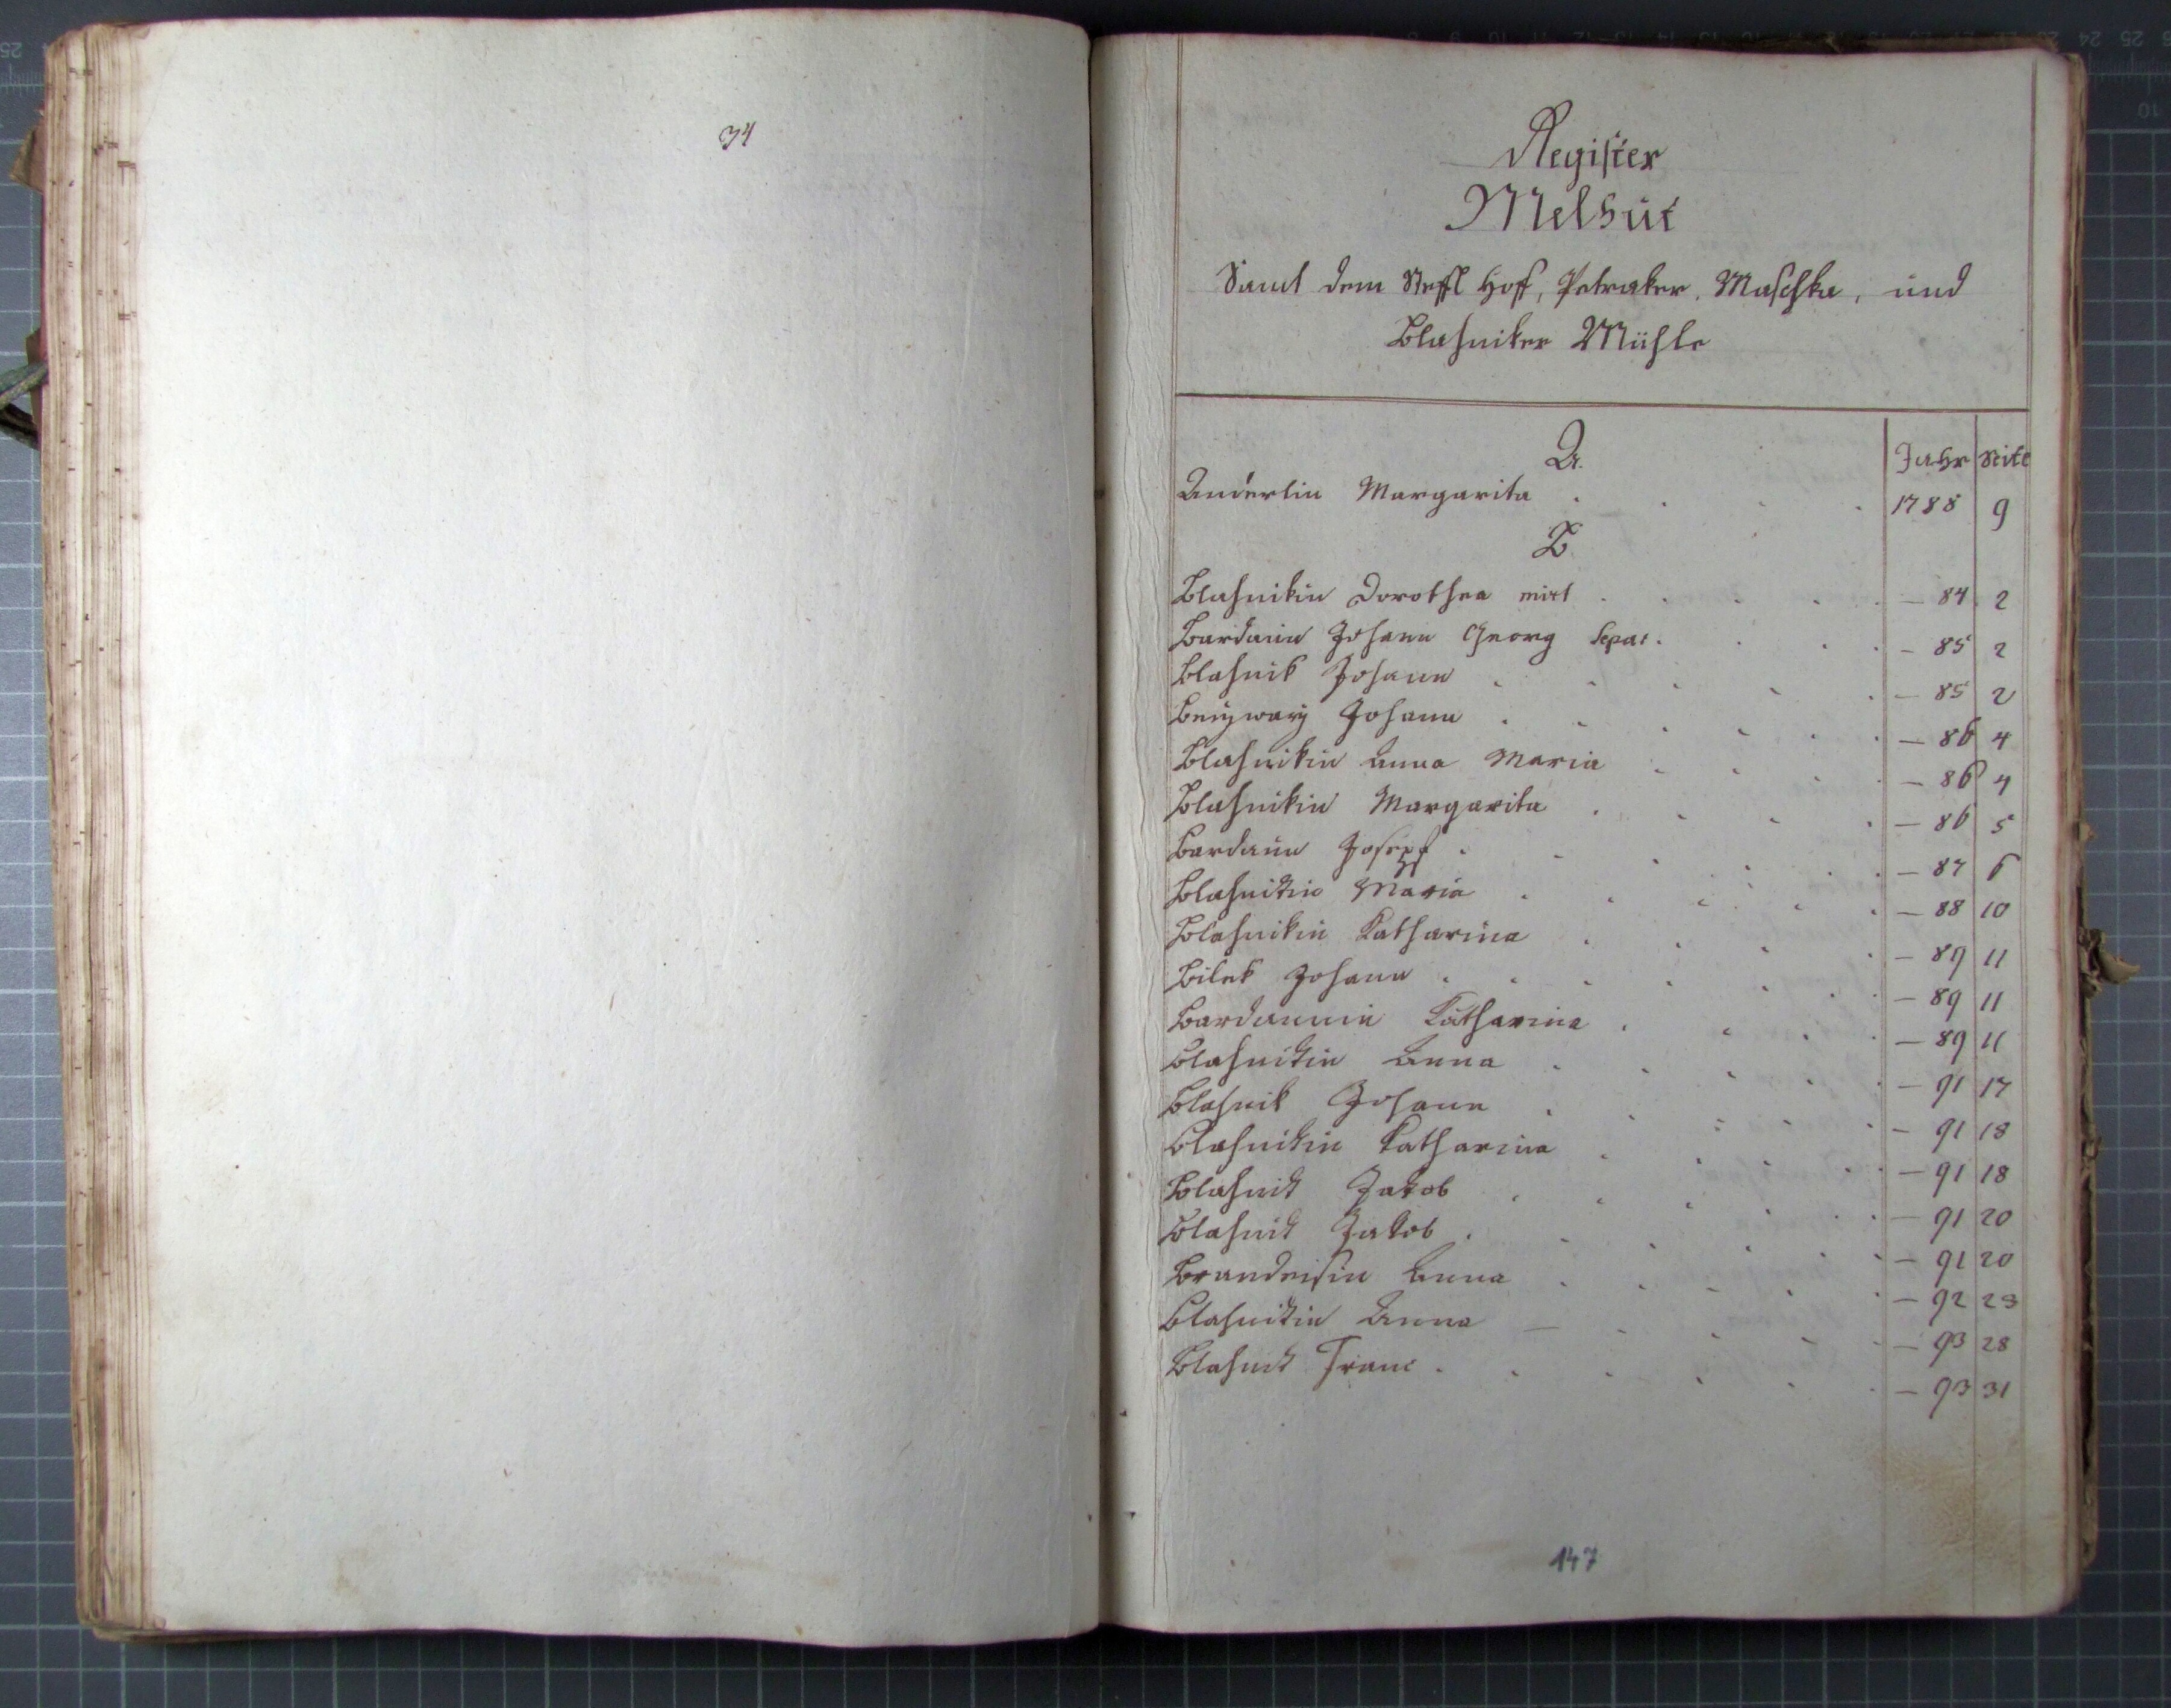 34
Register
Melhut
Samt dem Steffl Hoff, Petraker, Maschka, und
Blahniker Mühle
A.
Jahr Seite
Anderlin Margarita . . . . 1788 9
B
Blahnikin Dorothea . . . . — 84 2
Bardaun Johann Georg Separ. . . . — 85 2
Blahnik Johann . . . . . — 85 2
Johann . . . . . — 86 4
Blahnikin Anna Maria . . . — 86 4
Blahnikin Margarita . . . . — 86 5
Bardaun Joseph . . . . . — 87 6
Blahnikin Maria . . . . . — 88 10
Blahnikin Katharina . . . . — 89 11
Bilek Johann . . . . . . — 89 11
Bardaunin Katharina . . . . — 89 11
Blahnikin Anna . . . . . — 91 17
Blahnik Johann . . . . . — 91 18
Blahnikin Katharina . . . . — 91 18
Blahnik Jakob . . . . . — 91 20
Blahnik Jakob . . . . . . — 91 20
Brandeisin Anna . . . . . — 92 23
Blahnikin Anna — . . . . — 93 28
Blahnik Franc . . . . . . — 93 31
147